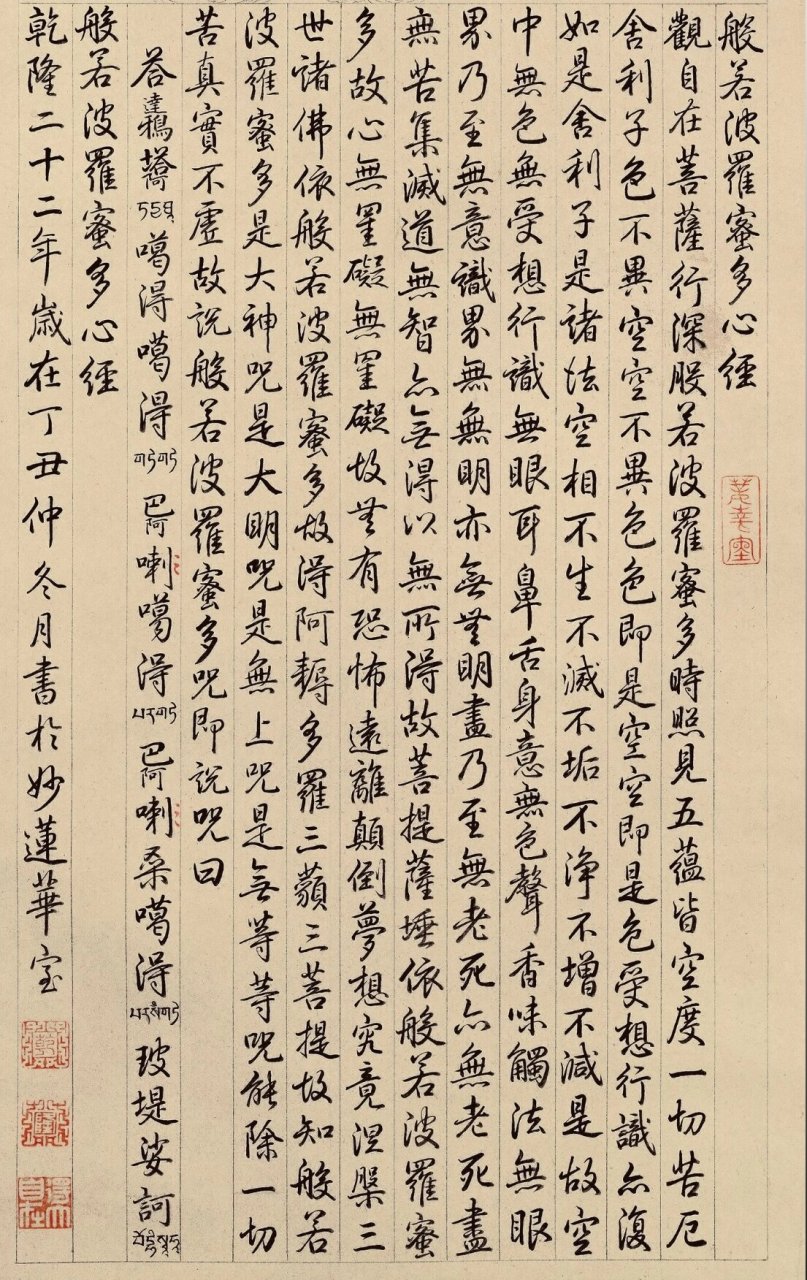 般若波羅蜜多心經
觀自在菩薩行深般若波羅蜜多時照見五蘊皆空度一切苦厄
舍利子色不異空空不異色色即是空空即是色受想行識亦復
如是舍利子是諸法空相不生不滅不垢不淨不增不減是故空
中無色無受想行識無眼耳鼻舌身意無色聲香味觸法無眼
界乃至無意識界無無明亦無無明盡乃至無老死亦無老死盡
無苦集滅道無智亦無得以無所得故菩提薩埵依般若波羅蜜
多故心無罣礙無罣礙故無有恐怖遠離顛倒夢想究竟涅槃三
世諸佛依般若波羅蜜多故得阿耨多羅三藐三菩提故知般若
波羅蜜多是大神咒是大明咒是無上咒是無等等咒能除一切
苦真實不虛故說般若波羅蜜多咒即說咒曰
答達鴉噶得噶得 གཏེགཏེ 巴阿喇噶得 པརགཏེ 巴阿喇桑噶得 玻堤娑訶
般若波羅蜜多心經
乾隆二十二年歲在丁丑仲冬月書於妙蓮華室
得大自在